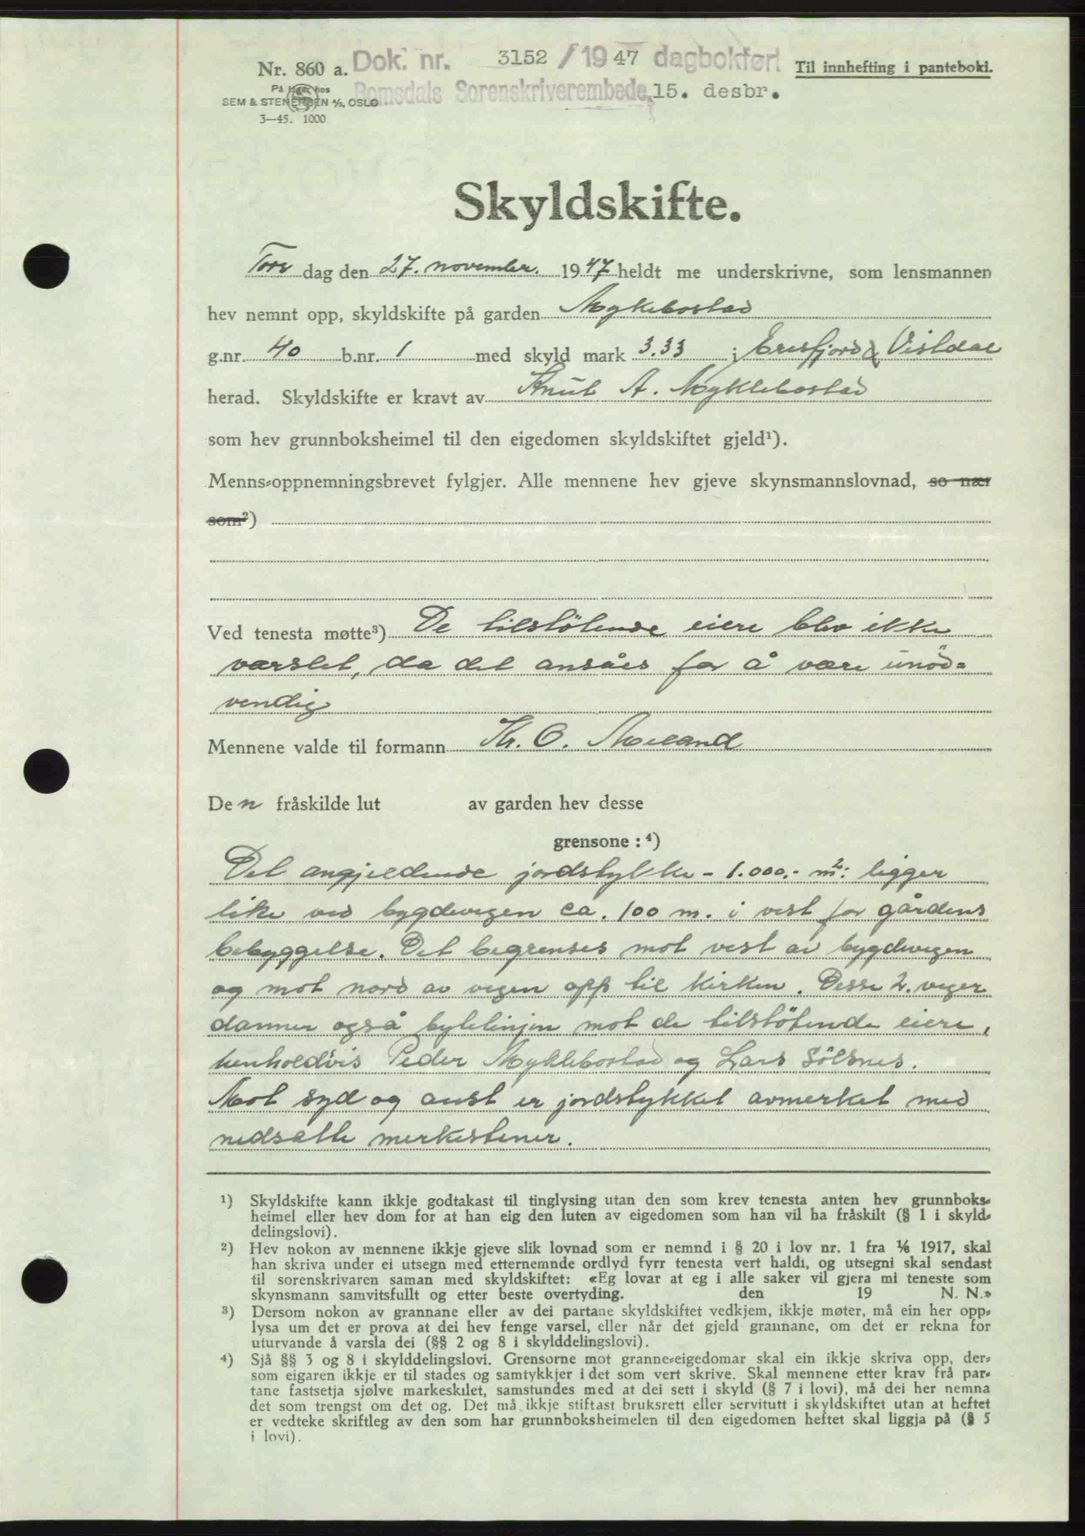 Nr. 860 a. Dok. nr. 3152 / 1947 dagbokført Til innhefting i panteboki.
På lager hos
SEM & STENERSEN A/S, OSLO Romsdals Sorenskriverembede, 15. desbr.
3—45. 1000
Skyldskifte.
Tors dag den 27. november. 1947 heldt me underskrivne, som lensmannen
hev nemnt opp, skyldskifte på garden Myklebostad
g.nr. 40 b.nr. 1 med skyld mark 3.33 i Eresfjord & Vistdal
herad. Skyldskifte er kravt av Knut A. Myklebostad
som hev grunnboksheimel til den eigedomen skyldskiftet gjeld¹).
Menns-oppnemningsbrevet fylgjer. Alle mennene hev gjeve skynsmannslovnad, so nær
som²)
Ved tenesta møtte³) De tilstötende eiere blev ikke
varslet, da det ansåes for å være unöd=
vendig
Mennene valde til formann Kr. O. Meeland
Den fråskilde lut av garden hev desse
grensone :⁴)
Det angjeldende jordstykke - 1.000.- m²: ligger
like ved bygdevegen ca. 100 m. i vest for gårdens
bebyggelse. Det begrenses mot vest av bygdevegen
og mot nord av vegen opp til kirken. Desse 2. veger
danner også bylelinjen mot de tilstötende eiere,
henholdvis Peder Myklebostad og Lars Sölsnes.
Mot syd og aust er jordstykket avmerket med
nedsatte merkestener.
¹) Skyldskifte kann ikkje godtakast til tinglysing utan den som krev tenesta anten hev grunnboks-
heimel eller hev dom for at han eig den luten av eigedomen som han vil ha fråskilt (§ 1 i skyld-
delingslovi).
²) Hev nokon av mennene ikkje gjeve slik lovnad som er nemnd i § 20 i lov nr. 1 fra 1/6 1917, skal
han skriva under ei utsegn med etternemnde ordlyd fyrr tenesta vert haldi, og utsegni skal sendast
til sorenskrivaren saman med skyldskiftet: «Eg lovar at eg i alle saker vil gjera mi teneste som
skynsmann samvitsfullt og etter beste overtyding. den 19 N. N.»
³) Dersom nokon av grannane eller av dei partane skyldskiftet vedkjem, ikkje møter, må ein her opp-
lysa um det er prova at dei hev fenge varsel, eller når det gjeld grannane, om det er rekna for
uturvande å varsla dei (§§ 2 og 8 i skylddelingslovi).
⁴) Sjå §§ 3 og 8 i skylddelingslovi. Grensorne mot granne-eigedomar skal ein ikkje skriva opp, der-
som eigaren ikkje er til stades og samtykkjer i det som vert skrive. Skal mennene etter krav frå par-
tane fastsetja sjølve markeskilet, samstundes med at dei sett i skyld (§ 7 i lovi), må dei her nemna
det som trengst om det og. Det må ikkje stiftast bruksrett eller servitutt i skyldskiftet utan at heftet
er vedteke skriftleg av den som har grunnboksheimelen til den eigedomen heftet skal liggja på (§ 5
i lovi).